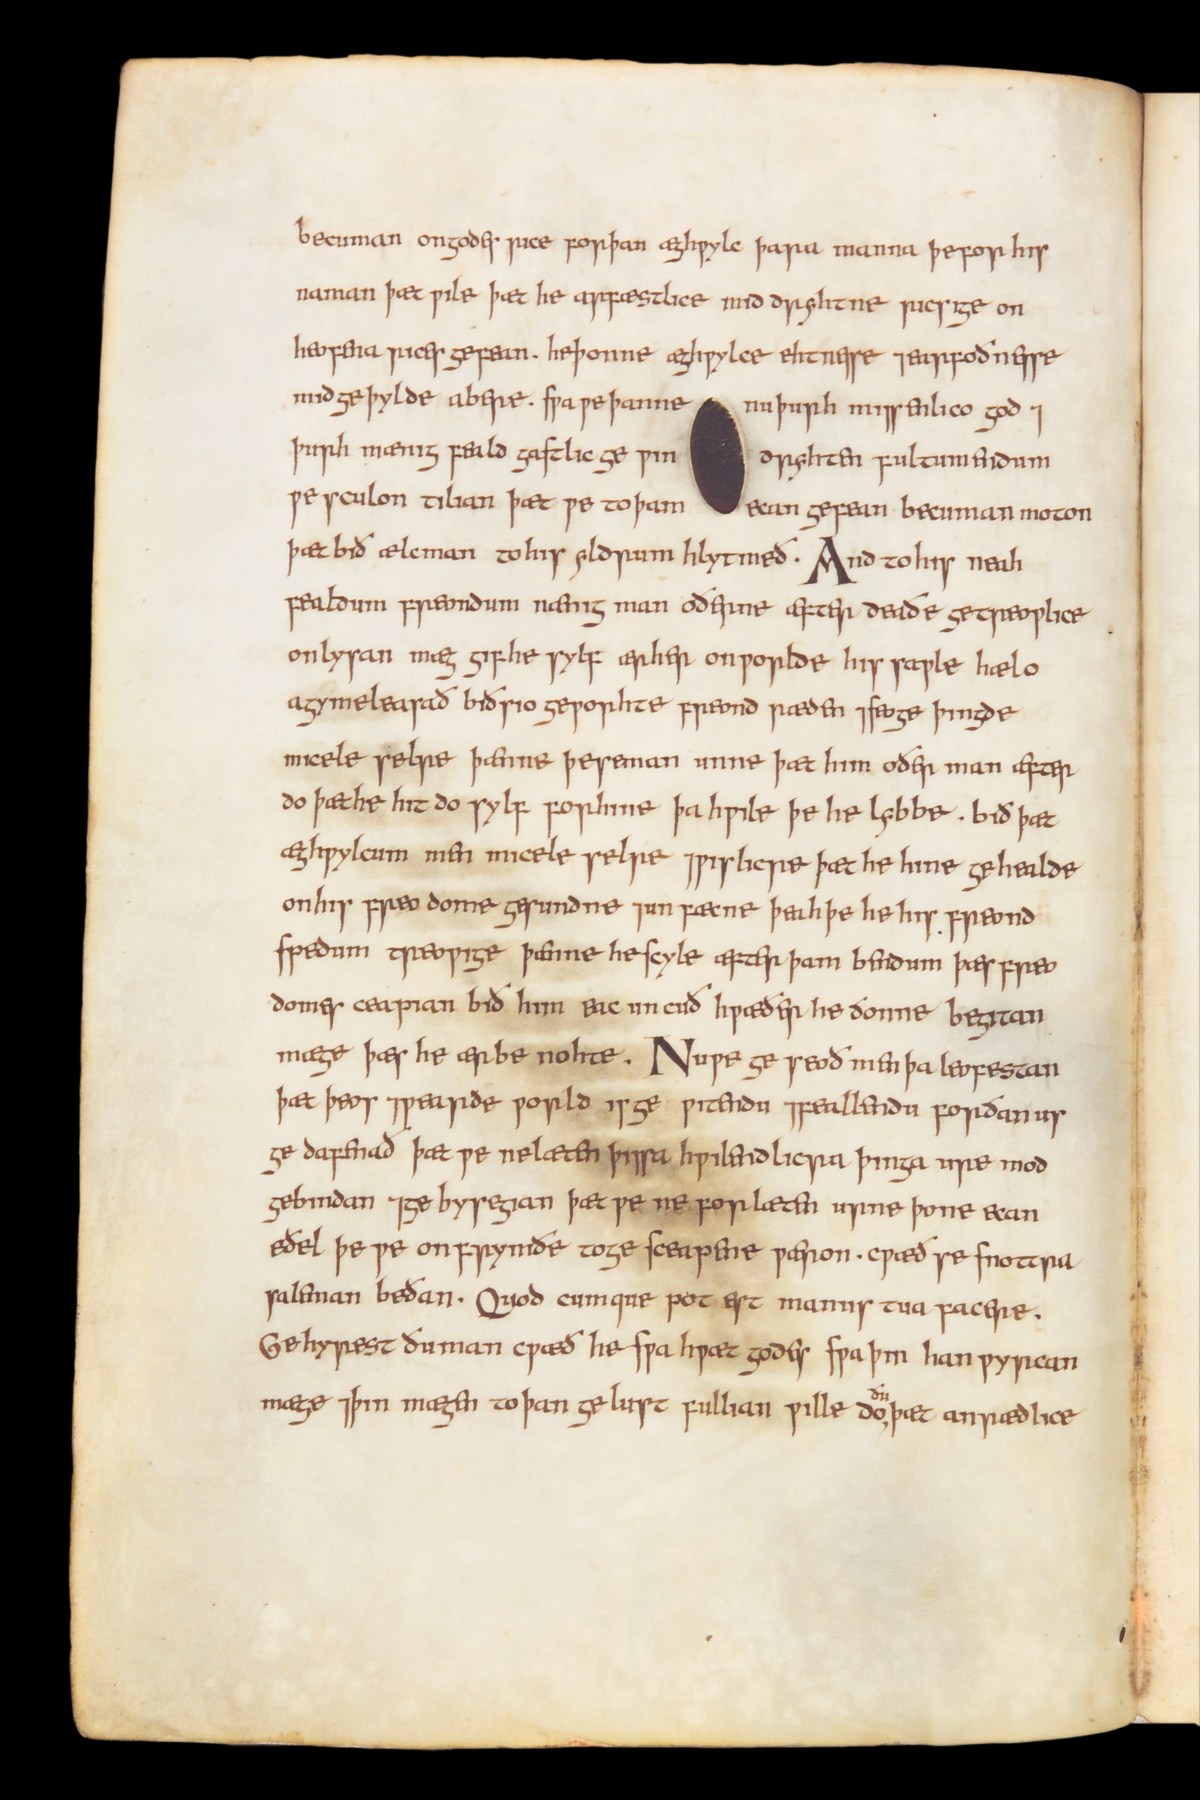 becuman on godes rice forþan æghƿylc þara manna þe for his
naman þæt ƿile þæt he arfæstlice mid drihtne ricsige on
heofena rices gefean. he þonne æghƿylce ehtnesse ⁊ earfoðnesse
mid geþylde abere. sƿa ƿe þanne nu þurh missenlico god ⁊
þurh mænig feald gastlic ge ƿin drihten fultumendum
ƿe sculon tilian þæt ƿe to þam ecan gefean becuman moton
þæt bið ælcman to his yldrum hlytmeð. And to his neah
fealdum freondum nænig man oðerne æfter deaðe getreoƿlice
onlysan mæg gif he sylf ær her on ƿorlde his saƿle hælo
agymeleasað bið sio geƿorhte freond ræden ⁊ seoge þingðe
micele selre þænne þe se man unne þæt him oðer man æfter
do þæt he hit do sylf for hine þa hƿile þe he lybbe. bið þæt
æghƿylcum men micele selre ⁊ ƿislicre þæt he hine gehealde
on his freo dome gesundne ⁊ un fæcne þeah þe he his freond
spedum treoƿige þænne he scyle æfter þam bendum þæs freo
domes ceapian bið him eac un cuð hƿæðer he ðonne begitan
mæge þæs he ær be nohte. Nu ƿe ge seoð men þa leofestan
þæt þeos ⁊ ƿearde ƿorld is ge ƿitendu ⁊ feallendu forðan us
ge dafenað þæt ƿe ne læten þissa hƿilendlicra þinga ure mod
gebindan ⁊ ge bysegian þæt ƿe ne forlæten urne þone ecan
eðel þe ƿe on frymðe to ge sceapene ƿæron. cƿæð se snottra
saleman beðan. Quod cumque pot est manus tua facere.
Gehyrest ðu man cƿæð he sƿa hƿæt godes sƿa þin han ƿyrcan
mæge ⁊ þin mægen to þan ge lust fullian ƿille do ðu þæt anrædlice